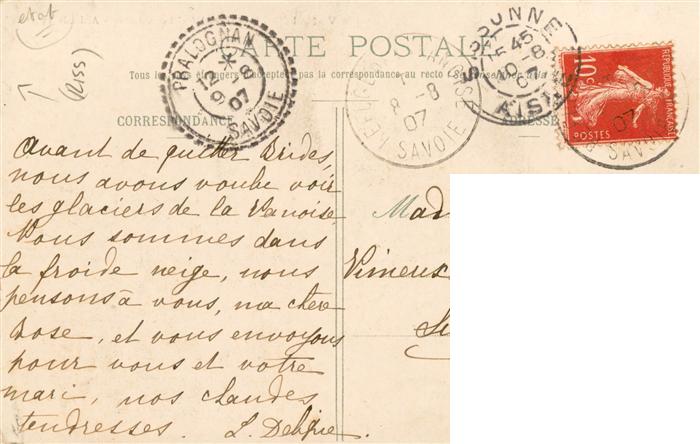 etat
(RISS)
CARTE POSTALE
Tous les pays étrangers n'acceptent pas la correspondance au recto
CORRESPONDANCE
ADRESSE
PRALOGNAN
9 -8
07
SAVOIE
8 -8
07
SAVOIE
15 45
10 -8
AIS
10c
REPUBLIQUE FRANÇAISE
POSTES
07
SAVOIE
Avant de quitter Brides,
nous avons voulu voir
les glaciers de la Vanoise.
Nous sommes dans
la froide neige, nous
pensons à vous, ma chère
Rose, et vous envoyons
pour vous et votre
mari, nos chaudes
tendresses.
Mad
Vimeux